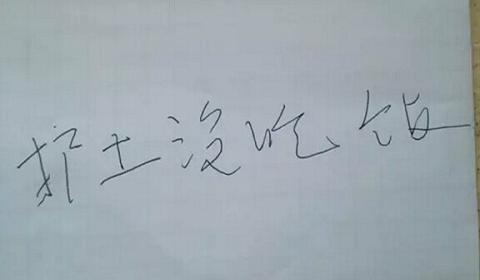 护士没吃饭